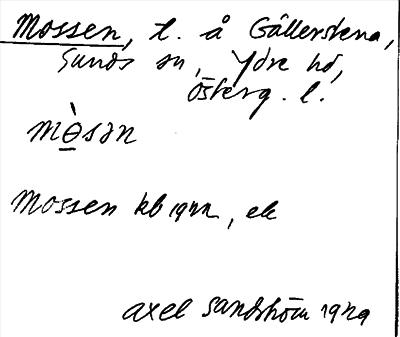 Mossen, t. å Gällerstena,
Sunds sn, Ydre hd,
Österg. l.
mòsən
Mossen kb 1922, ek
axel Sandström 1929